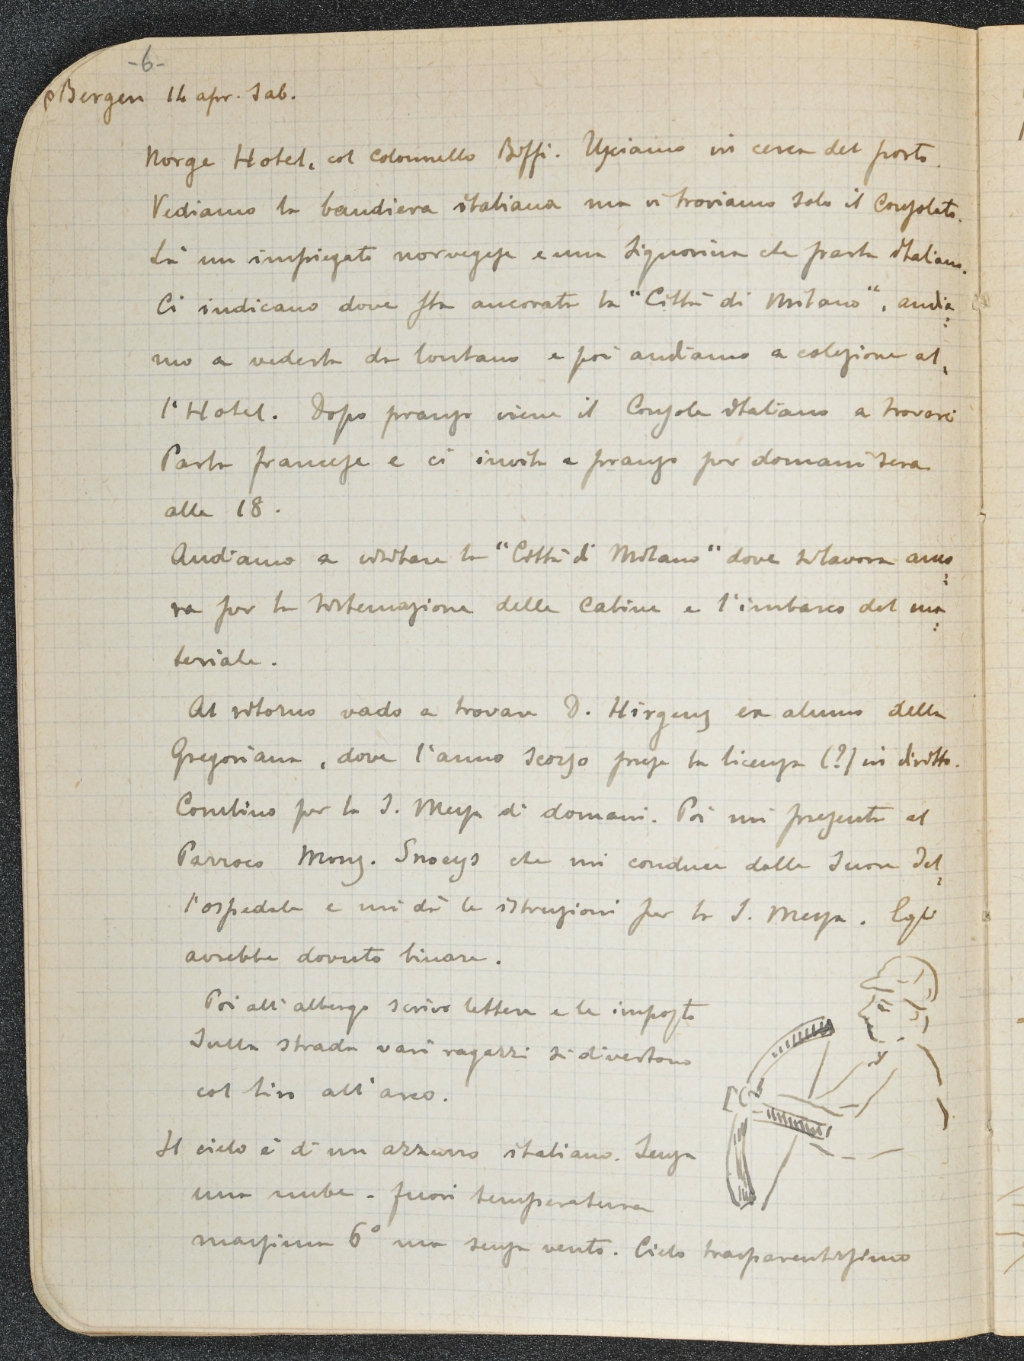 -6-
Bergen 14 apr. Sab.
Norge Hotel, col colonnello Boffi. Usciamo in cerca del porto.
Vediamo la bandiera italiana ma vi troviamo solo il Consolato.
Là un impiegato norvegese e una Signorina che parla italiano.
Ci indicano dove sta ancorata la "Città di Milano", andia=
mo a vederla da lontano e poi andiamo a colazione al,
l'Hotel. Dopo pranzo viene il Console italiano a trovarci
Parla francese e ci invita a pranzo per domani sera
alle 18.
Andiamo a visitare la "Città di Milano" dove si lavora anco=
ra per la sistemazione delle cabine e l'imbarco del ma=
teriale.
Al ritorno vado a trovare D. Hirgens ex alunno della
Gregoriana, dove l'anno scorso prese la licenza (?) in diritto.
Combino per la S. Messa di domani. Poi mi presenta al
Parroco Mons. Snoeys che mi conduce dalle Suore del,
l'ospedale e mi dà le istruzioni per la S. Messa. Egli
avrebbe dovuto binare.
Poi all'albergo scrivo lettere e le imposto
Sulla strada vari ragazzi si divertono
col tiro all'arco.
Il cielo è di un azzurro italiano. Senza
una nube - fuori temperatura
massima 6° ma senza vento. Cielo trasparentissimo